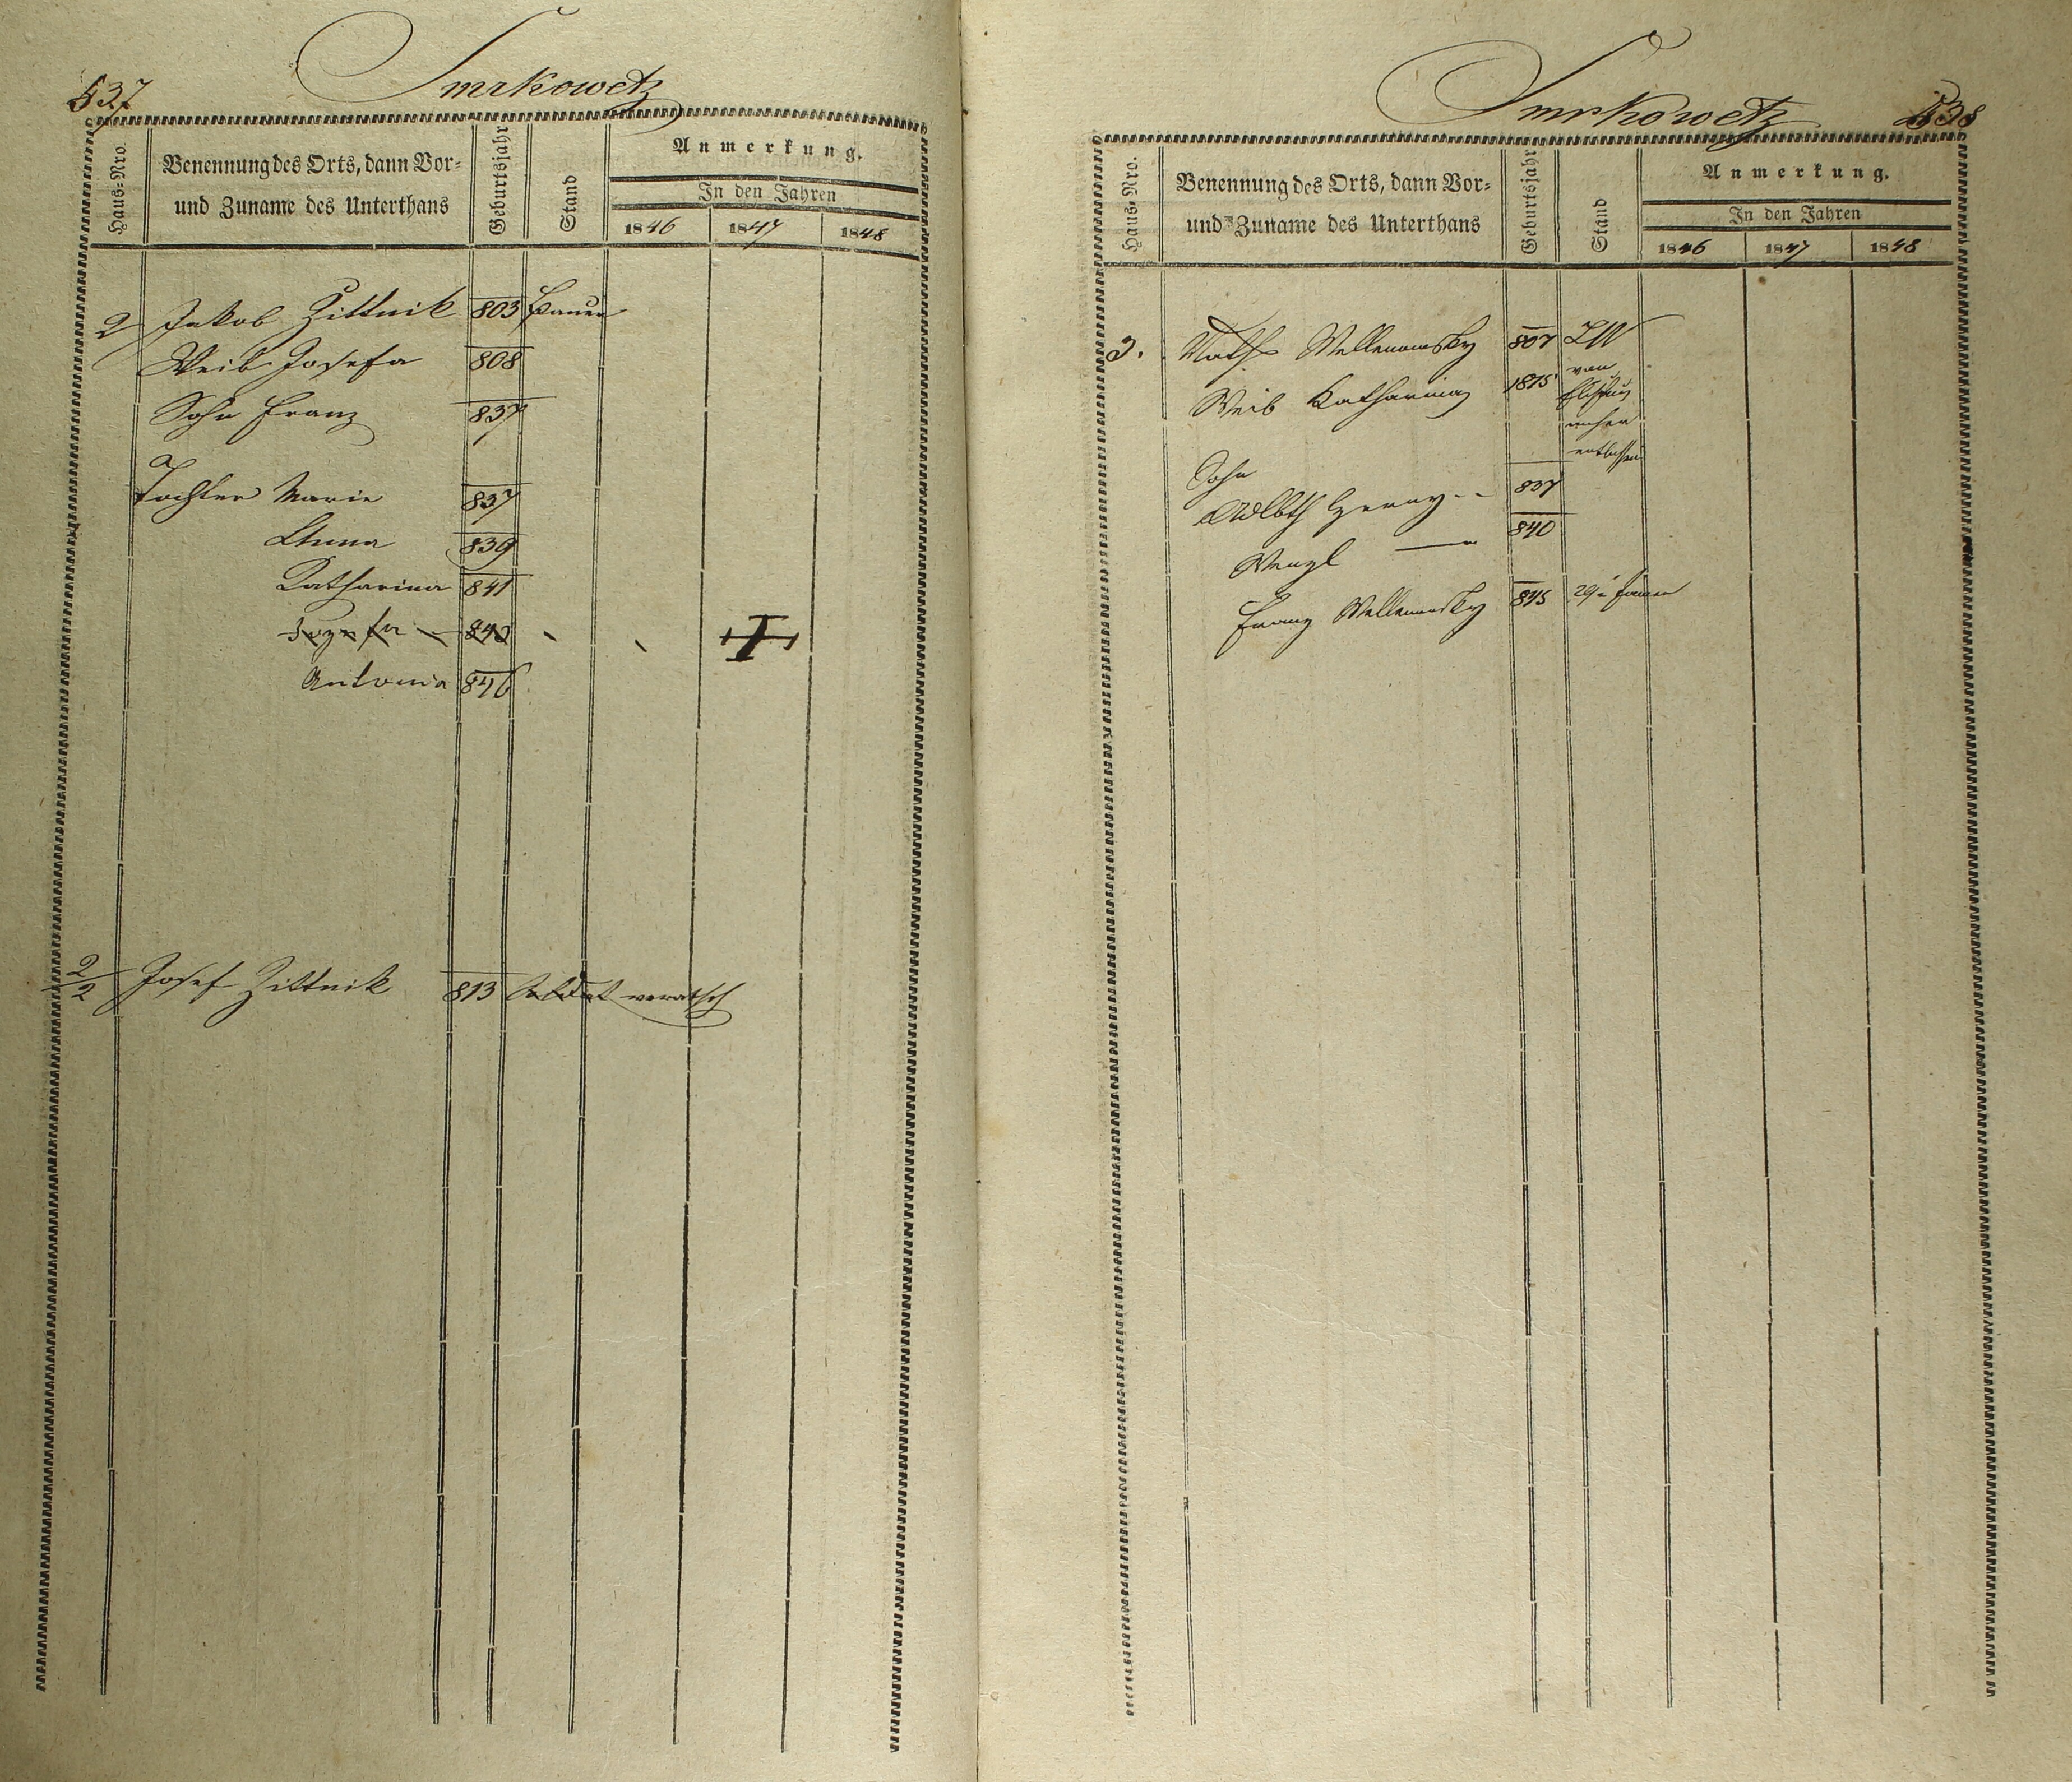 537
Smrkowetz
Haus-Nro.
Benennung des Orts, dann Vor-
und Zuname des Unterthans
Geburtsjahr
Stand
Anmerkung.
In den Jahren
1846 1847 1848
2 Jakob Zittnik 803 Bauer
Weib Josefa 808
Sohn Franz 837
Tochter Marie 837
Anna 839
Katharina 841
Josefa 843
Antonia 846
2/2 Josef Zittnik 813 Soldat
Smrkowetz
538
Haus-Nro.
Benennung des Orts, dann Vor-
und Zuname des Unterthans
Geburtsjahr
Stand
Anmerkung.
In den Jahren
1846 1847 1848
3. Math. Wellenowsky 807
Weib Katharina 1815 von
entlassen
Sohn
Adlbth Czerny 837
Wenzl 840
Franz Wellenowsky 845